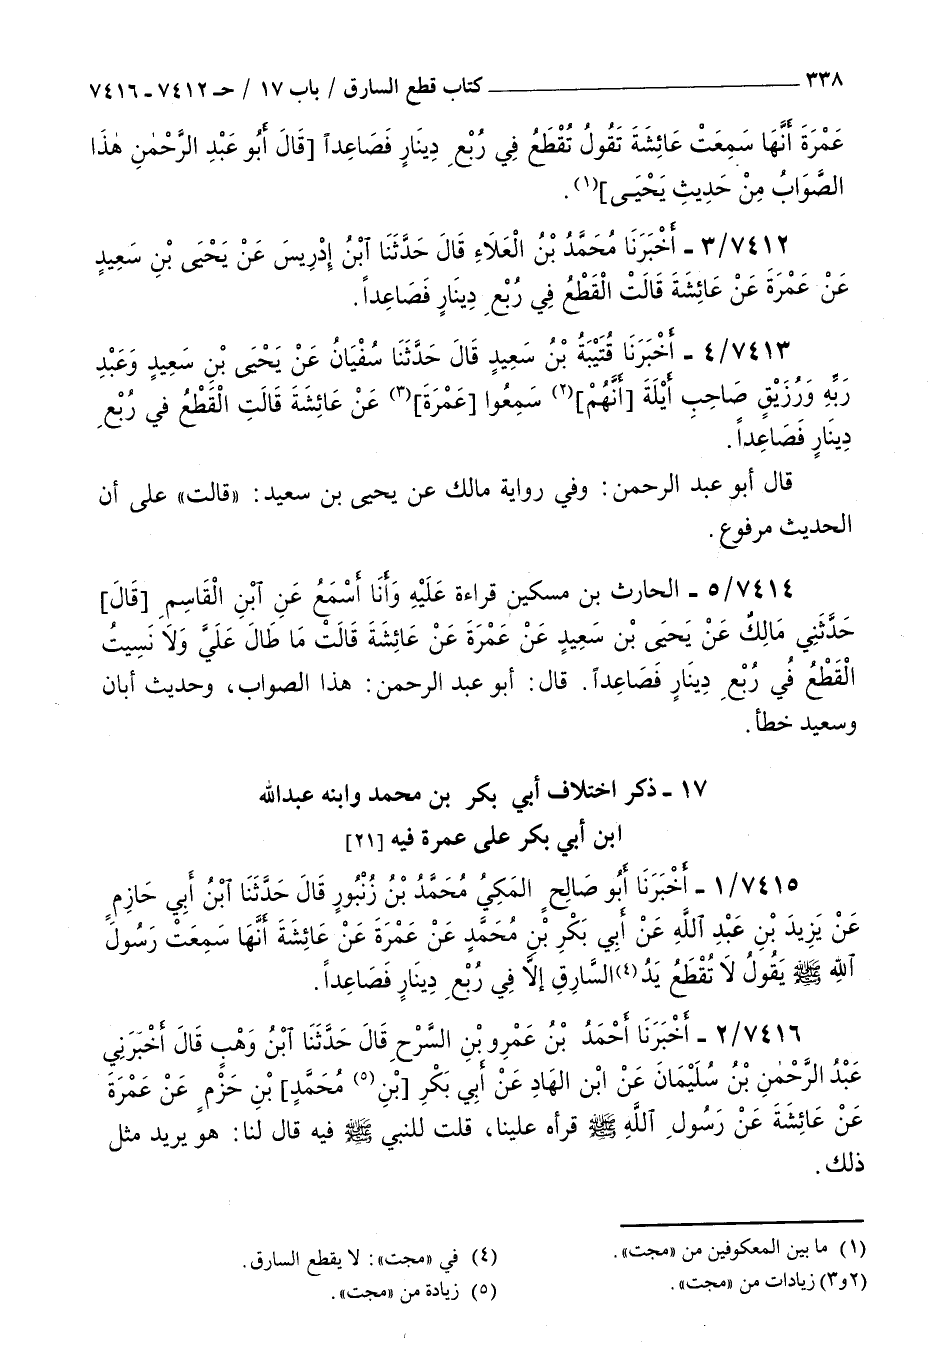 ٣٣٨ كتاب قطع السارق / باب ١٧ / حـ ٧٤١٢ ـ ٧٤١٦
عَمْرَةَ أَنَّهَا سَمِعَتْ عَائِشَةَ تَقُولُ تُقْطَعُ فِي رُبْعِ دِينَارٍ فَصَاعِداً [قَالَ أَبُو عَبْدِ الرَّحْمٰنِ هٰذَا
الصَّوَابُ مِنْ حَدِيثِ يَحْيَـى](١).
٣/٧٤١٢ ـ أَخْبَرَنَا مُحَمَّدُ بْنُ الْعَلَاءِ قَالَ حَدَّثَنَا ٱبْنُ إِدْرِيسَ عَنْ يَحْيَى بْنِ سَعِيدٍ
عَنْ عَمْرَةَ عَنْ عَائِشَةَ قَالَتْ الْقَطْعُ فِي رُبْعِ دِينَارٍ فَصَاعِداً.
٤/٧٤١٣ ـ أَخْبَرَنَا قُتَيْبَةُ بْنُ سَعِيدٍ قَالَ حَدَّثَنَا سُفْيَانُ عَنْ يَحْيَى بْنِ سَعِيدٍ وَعَبْدِ
رَبِّهِ وَرُزَيْقٍ صَاحِبِ أَيْلَةَ [أَنَّهُمْ](٢) سَمِعُوا [عَمْرَةَ](٣) عَنْ عَائِشَةَ قَالَتِ الْقَطْعُ في رُبْعِ
دِينَارٍ فَصَاعِداً.
قال أبو عبد الرحمن: وفي رواية مالك عن يحيى بن سعيد: «قالت» على أن
الحديث مرفوع.
٥/٧٤١٤ ـ الحارث بن مسكين قراءة عَلَيْهِ وَأَنَا أَسْمَعُ عَنِ ٱبْنِ الْقَاسِمِ [قَالَ]
حَدَّثَنِي مَالِكٌ عَنْ يَحيَى بْنِ سَعِيدٍ عَنْ عَمْرَةَ عَنْ عَائِشَةَ قَالَتْ مَا طَالَ عَلَيَّ وَلَا نَسِيتُ
الْقَطْعُ فُي رُبْعِ دِينَارٍ فَصَاعِداً. قال: أبو عبد الرحمن: هذا الصواب، وحديث أبان
وسعيد خطأ.
١٧ ـ ذكر اختلاف أبي بكر بن محمد وابنه عبدالله
ابن أبي بكر على عمرة فيه [٢١]
١/٧٤١٥ ـ أَخْبَرَنَا أَبُو صَالِحٍ المَكِيُّ مُحَمَّدُ بْنُ زُنْبُورٍ قَالَ حَدَّثَنَا ٱبْنُ أَبِي حَازِمٍ
عَنْ يَزِيدَ بْنِ عَبْدِ ٱللَّهِ عَنْ أَبِي بَكْرِ بْنِ مُحَمَّدٍ عَنْ عَمْرَةَ عَنْ عَائِشَةَ أَنَّهَا سَمِعَتْ رَسُولَ
ٱللهِ ﷺ يَقُولُ لَا تُقْطَعُ يَدُ(٤) السَّارِقِ إلَّا فِي رُبْعِ دِينَارٍ فَصَاعِداً.
٢/٧٤١٦ ـ أَخْبَرَنَا أَحْمَدُ بْنُ عَمْرِو بْنِ السَّرْحِ قَالَ حَدَّثَنَا ٱبْنُ وَهْبٍ قَالَ أَخْبَرَنِي
عَبْدُ الرَّحْمٰنِ بْنُ سُلَيْمَانَ عَنْ ابْنِ الهَادِ عَنْ أَبِي بَكْرِ [بْنِ(٥) مُحَمَّدٍ] بْنِ حَزْمٍ عَنْ عَمْرَةَ
عَنْ عَائِشَةَ عَنْ رَسُولِ ٱللَّهِ ﷺ قرأه علينا، قلت للنبي ﷺ فيه قال لنا: هو يريد مثل
ذلك.
(١) ما بين المعكوفين من «مجت».
(٢ و٣) زيادات من «مجت».
(٤) في «مجت»: لا يقطع السارق.
(٥) زيادة من «مجت».